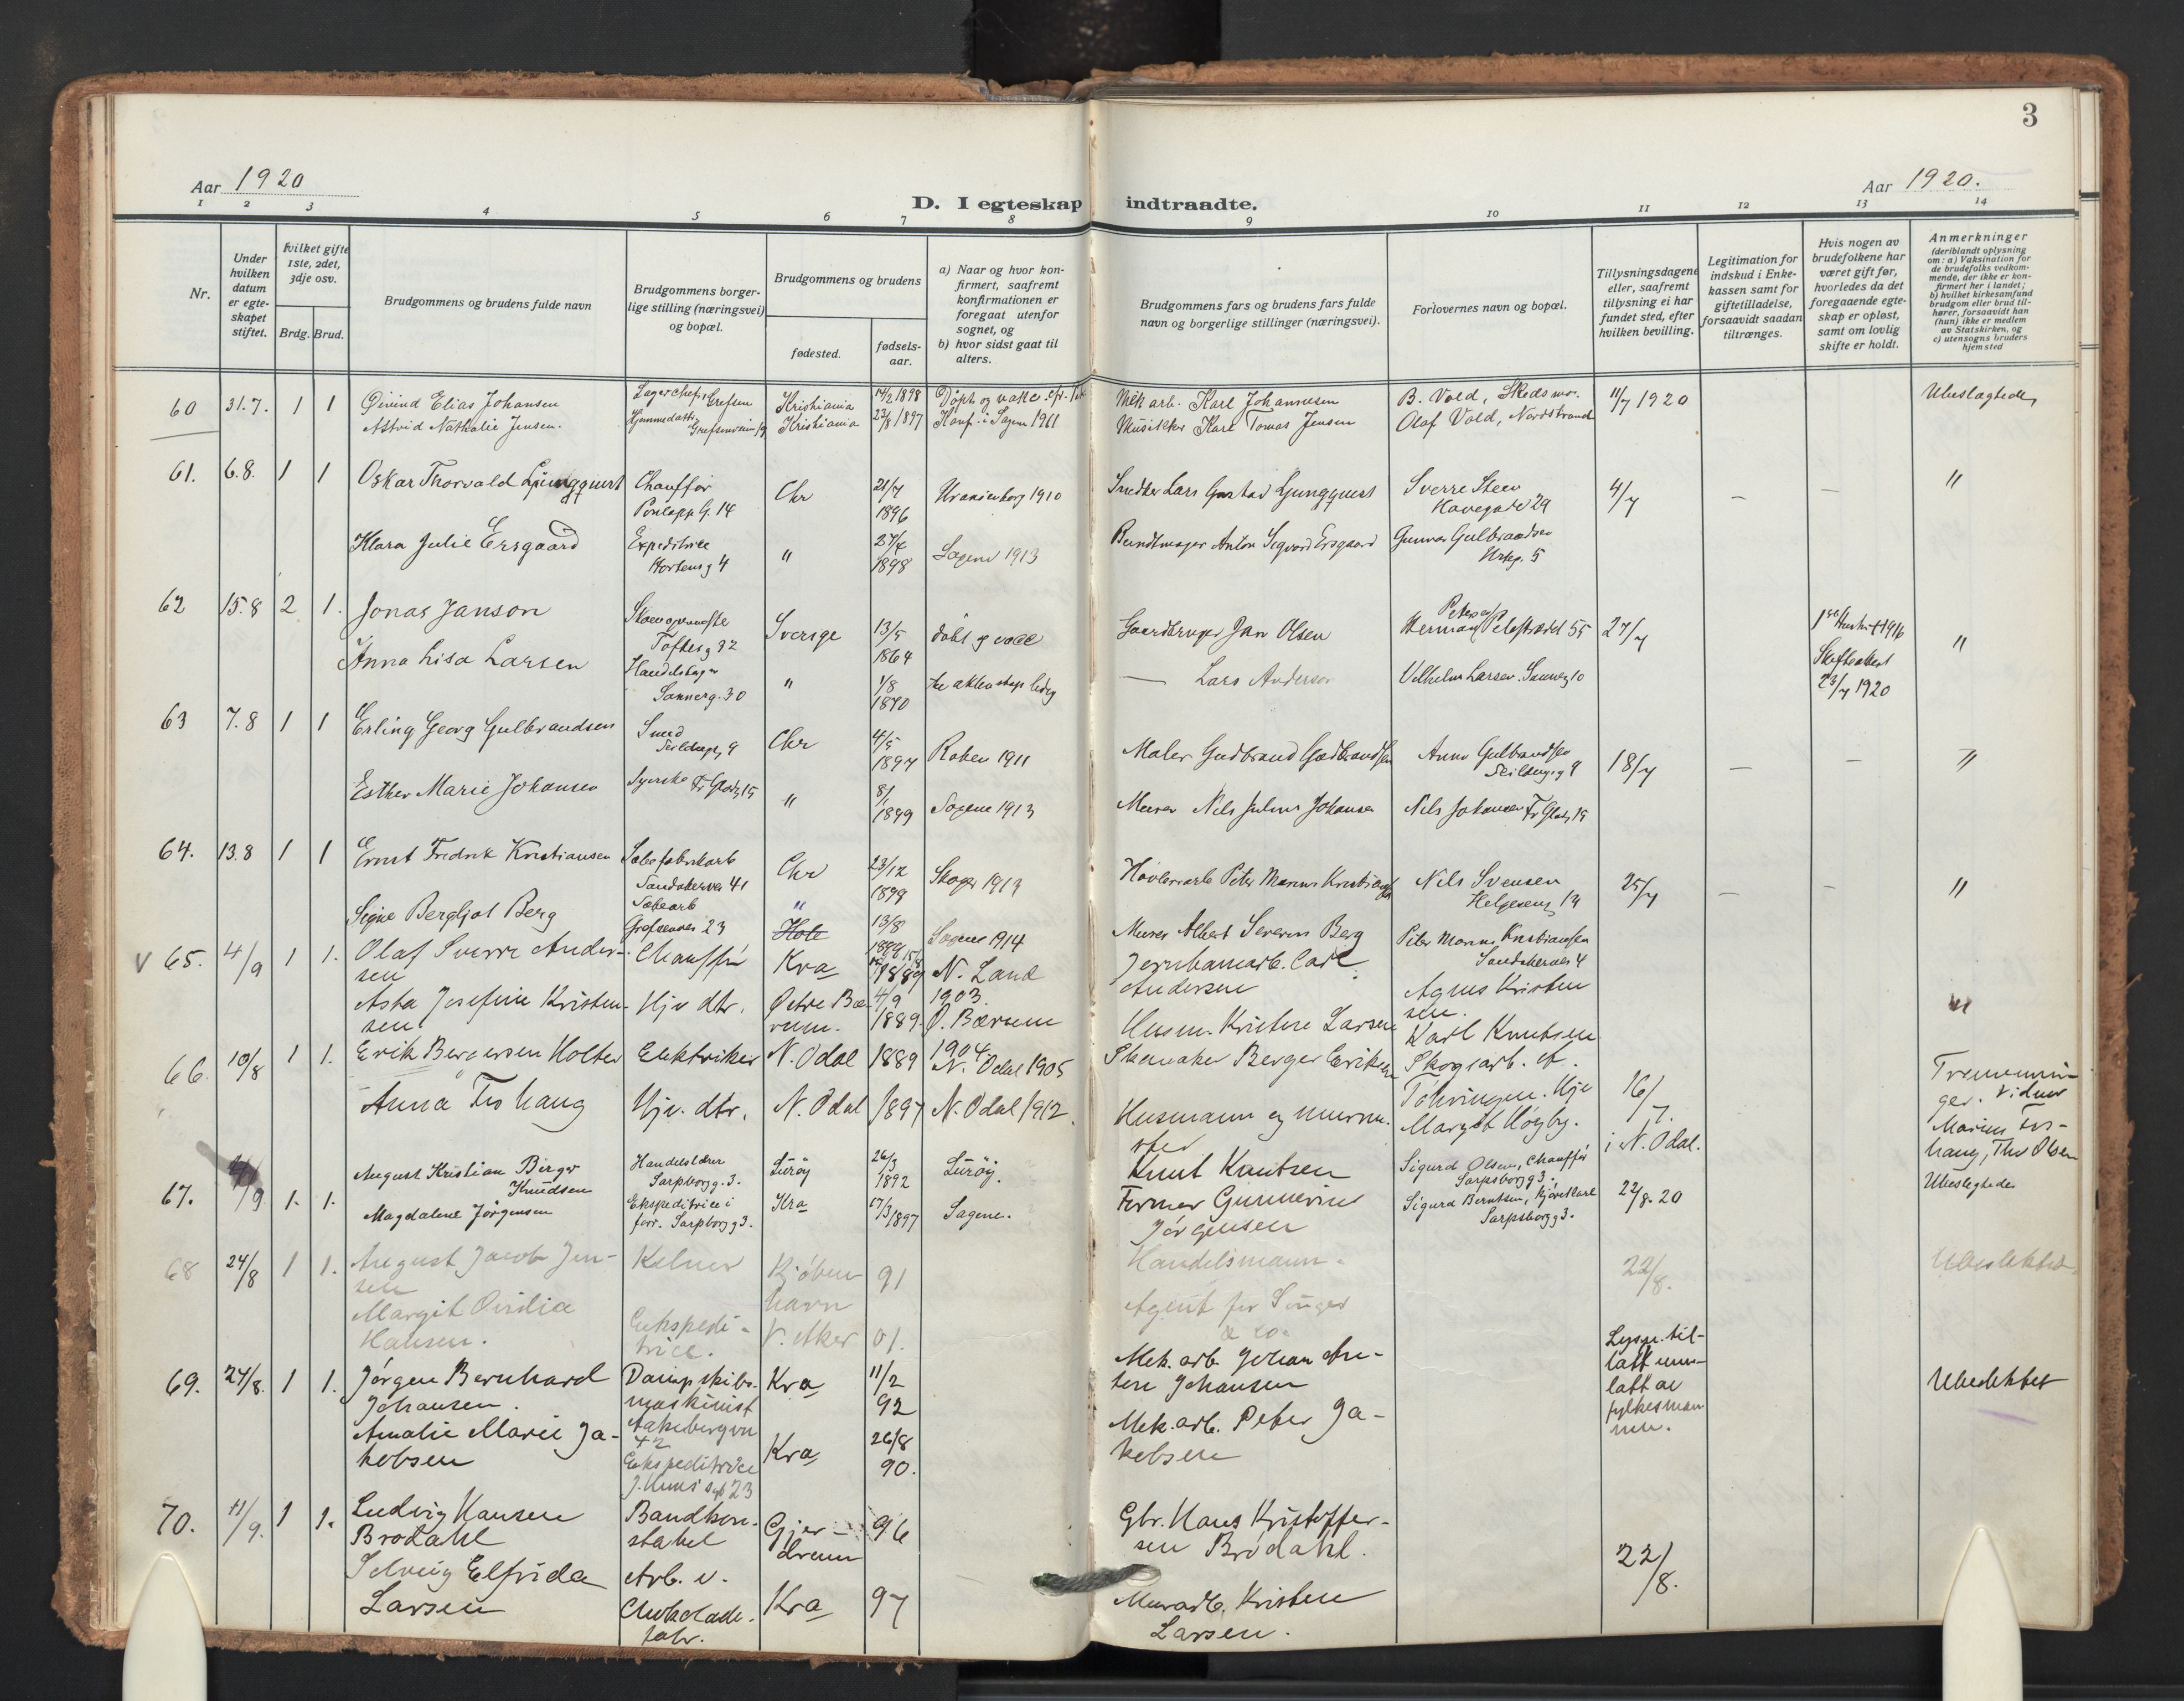 3
Aar 1920
Aar 1920.
D. I egteskap indtraadte.
1 2 3 4 5 6 7 8 9 10 11 12 13 14
Nr.
Under hvilken datum er egteskapet stiftet.
Hvilket gifte 1ste, 2det, 3dje osv.
Brdg. Brud.
Brudgommens og brudens fulde navn
Brudgommens borgerlige stilling (næringsvei) og bopæl.
Brudgommens og brudens
fødested.
fødselsaar.
a) Naar og hvor konfirmert, saafremt konfirmationen er foregaat utenfor sognet, og
b) hvor sidst gaat til alters.
Brudgommens fars og brudens fars fulde navn og borgerlige stillinger (næringsvei).
Forlovernes navn og bopæl.
Tillysningsdagene eller, saafremt tillysning ei har fundet sted, efter hvilken bevilling.
Legitimation for indskud i Enkekassen samt for giftetilladelse, forsaavidt saadan tiltrænges.
Hvis nogen av brudefolkene har været gift før, hvorledes da det foregaaende egteskap er opløst, samt om lovlig skifte er holdt.
Anmerkninger
(deriblandt oplysning om: a) Vaksination for de brudefolks vedkommende, der ikke er konfirmert her i landet; b) hvilket kirkesamfund brudgom eller brud tilhører, forsaavidt han (hun) ikke er medlem av Statskirken, og c) utensogns bruders hjemsted
60 31.7. 1 1 Øivind Elias Johansen Lagerchef, Grefsen Kristiania 14/2 1898 Mek arb. Karl Johannesen B. Vold, Skedsmo. 11/7 1920 Ubeslægtede
Astrid Nathalie Jensen. Kristiania 22/8 1897 Konf. i Sagene 1911 Musikker Karl Tomas Jensen Olaf Vold, Nordstrand
61. 6.8. 1 1 Oskar Thorvald Ljungquist Chauffør Chr 21/7 1896 Uranienborg 1910 Snedker Lars Gustav Ljungquest Sverre Steen 4/7 – – "
Klara Julie Ersgaard Expeditrice " 27/4 1898 Sagene 1913 Bundtmager Anton Sigvard Ersgaard Gunnar Gulbrandsen
62 15.8 2 1. Jonas Janson Toftesg 32 Sverige 13/5 1864 døbt og vacc Gaardbruger Jan Olsen 27/7 "
Anna Lisa Larsen Sannerg. 30 " 1/8 1870 — Lars Anderson Vilhelm Larsen. Sannerg 10 23/7 1920
63 7.8 1 1 Erling Georg Gulbrandsen Smed Chr 4/5 1897 Raken 1911 Maler Gudbrand Gudbrandsen Anna Gulbrandsen 18/7 – – "
Esther Marie Johansen Syerske " 8/1 1899 Sagene 1913 Murer Nils Julius Johansen Nils Johansen
64. 13.8 1 1 Ernst Fredrik Kristiansen Sæbefabrikarb Sandakerven 41 Chr 23/12 1899 Skoger 1913 Høvleriarb Peter Marius Kristiansen Nils Svensen Helgesens 14 25/7 – – "
Signe Bergljot Berg Sæbearb Grefsenvei 23 " Hole 13/8 Sagene 1914 Murer Albert Severin Berg Peter Marius Kristiansen Sandakerven 4
V 65. 4/9 1 1. Olaf Sverre Andersen Chauffør Kra 1889 N. Land 1903. Jernbanearb. Carl Andersen Agnes Kristensen.
Asta Josefine Kristensen Hjv dtr. Østre Bærum. 4/9 1889. Ø. Bærum 1904. Husm. Kristen Larsen Karl Knutsen
66. 10/8 1 1. Erik Bergersen Holter Elektriker N. Odal 1889 N. Odal 1905 Berger Eriksen Skogsarb. 16/7. i N. Odal.
Anna Foshaug Hjv. dtr. N. Odal 1897 N. Odal 1912. Husmann og murmester Margit Høgby.
67. 4/9 1. 1. August Kristian Birger Knudsen Handelslærer Sarpborgg. 3. Lurøy 26/3 1892 Lurøy. Knut Knutsen Sigurd Olsen, Chauffør Sarpsborgg 3. 22/8. 20 Ubeslegtede
Magdalene Jørgensen Ekspeditrice i forr. Sarpborgg 3. Kra 17/3 1897 Sagene. Former Gunnerius Jørgensen Sigurd Berntsen, Kjørekarl Sarpsborgg 3.
68 24/8 1 1. August Jacob Jensen Kelner Kjøbenhavn 91 Handelsmann. 22/8. Ubeslektet.
Margit Ovidia Hansen. Ekspeditrice. V. Aker 01. Agent for Singer & Co.
69. 24/8. 1 1. Jørgen Bernhard Johansen. Dampskibsmaskinist Aakebergvn 42 Kra 11/2 92 Mek. arb. Johan Antere Johansen Ubeslektet
Amalie Marie Jakobsen Ekspeditrice Kra 26/8 90. Mek. arb. Peter Jakobsen
70. 11/9. 1 1. Ludvig Hansen Brodahl Baandkonstabel Gjerdrum 96 Gbr. Hans Kristoffersen Brodahl. 22/8.
Solveig Elfrida Larsen Arb. v. Chokoladefabr. Kra 97 Murarb. Kristen Larsen.